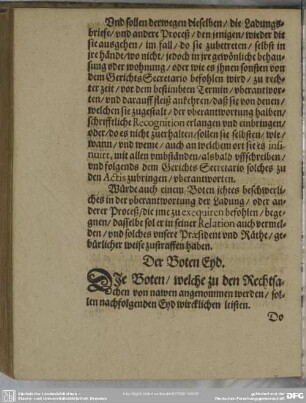 Vnd sollen derwegen dieselben / die Ladungs-
briefe / vnd andere Proceß / den jenigen / wieder die
sie ausgehen / im fall / do sie zubetreten / selbst in
jre hände / wo nicht / jedoch in jre gewönliche behau-
sung oder wohnung / oder wie es jhnen sonsten von
dem Gerichts Secretario befohlen wird / zu rech-
ter zeit / vor dem bestimbten Termin / vberantwor-
ten / vnd darauff fleis ankehren / daß sie von deuen /
welchen sie zugestalt / der vberantwortung halben /
schrifftliche Recognition erlangen vnd einbringen /
oder / do es nicht zuerhalten / sollen sie selbsten / wie /
wann / vnd weme / auch an welchem ort sie es insi-
nuirt, mit allen vmbständen / alsbald vffschreiben /
vnd folgends dem Gerichts Secretario solches zu
den Actis zubringen / vberantworten.
Würde auch einem Boten jchtes beschwerli-
ches in der vberantwortung der Ladung / oder an-
derer Proceß / die ime zu exequiren befohlen / bege-
gnen / dasselbt sol er in seiner Relation auch vermel-
den / vnd solches vnsere Præsident vnd Räthe / ge-
bürlicher weise zustraffen haben.
Der Boten Eyd.
DJe Boten / welche zu den Rechtsa-
chen von nawen angenommen werden / sol-
len nachfolgenden Eyd wircklichen leisten.
Do